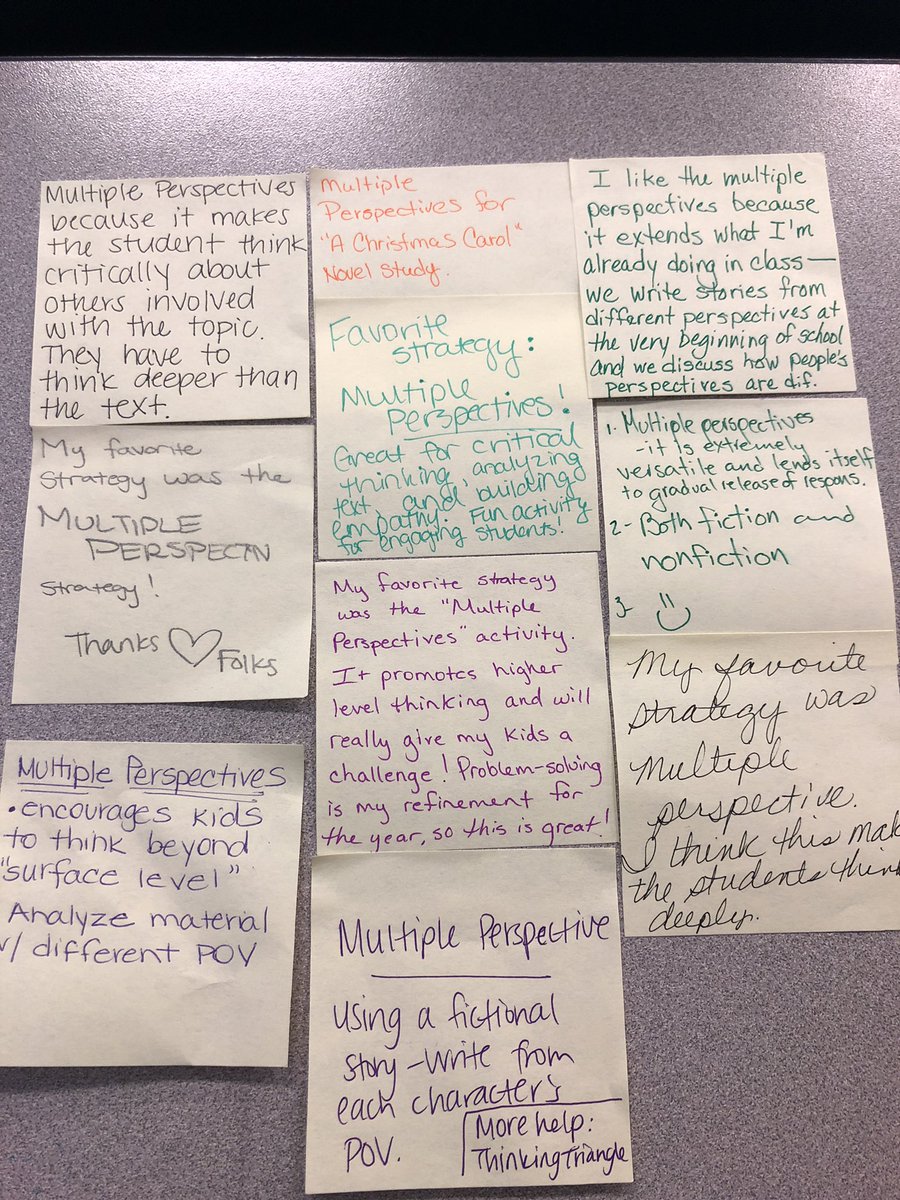 Multiple Perspectives
because it makes
the student think
critically about
others involved
with the topic.
They have to
think deeper than
the text.
My favorite
strategy was the
MULTIPLE
PERSPECTIV
strategy!
Thanks ♡ Folks
Multiple Perspectives
• encourages kids
to think beyond
"surface level"
Analyze material
w/ different POV
Multiple
Perspectives for
"A Christmas Carol"
Novel study.
Favorite
strategy:
Multiple
Perspectives!
Great for critical
thinking, analyzing
text, and building
empathy. Fun activity
for engaging students!
My favorite strategy
was the "Multiple
Perspectives" activity.
It promotes higher
level thinking and will
really give my kids a
challenge! Problem-solving
is my refinement for
the year, so this is great!
Multiple Perspective
Using a fictional
story - write from
each character's
POV.
More help:
Thinking Triangle
I like the multiple
perspectives because
it extends what I'm
already doing in class—
we write stories from
different perspectives at
the very beginning of school
and we discuss how people's
perspectives are dif.
1. Multiple perspectives
- it is extremely
versatile and lends itself
to gradual release of respons.
2- Both fiction and
nonfiction
3- :)
My favorite
strategy was
multiple
perspective.
I think this mak
the students think
deeply.